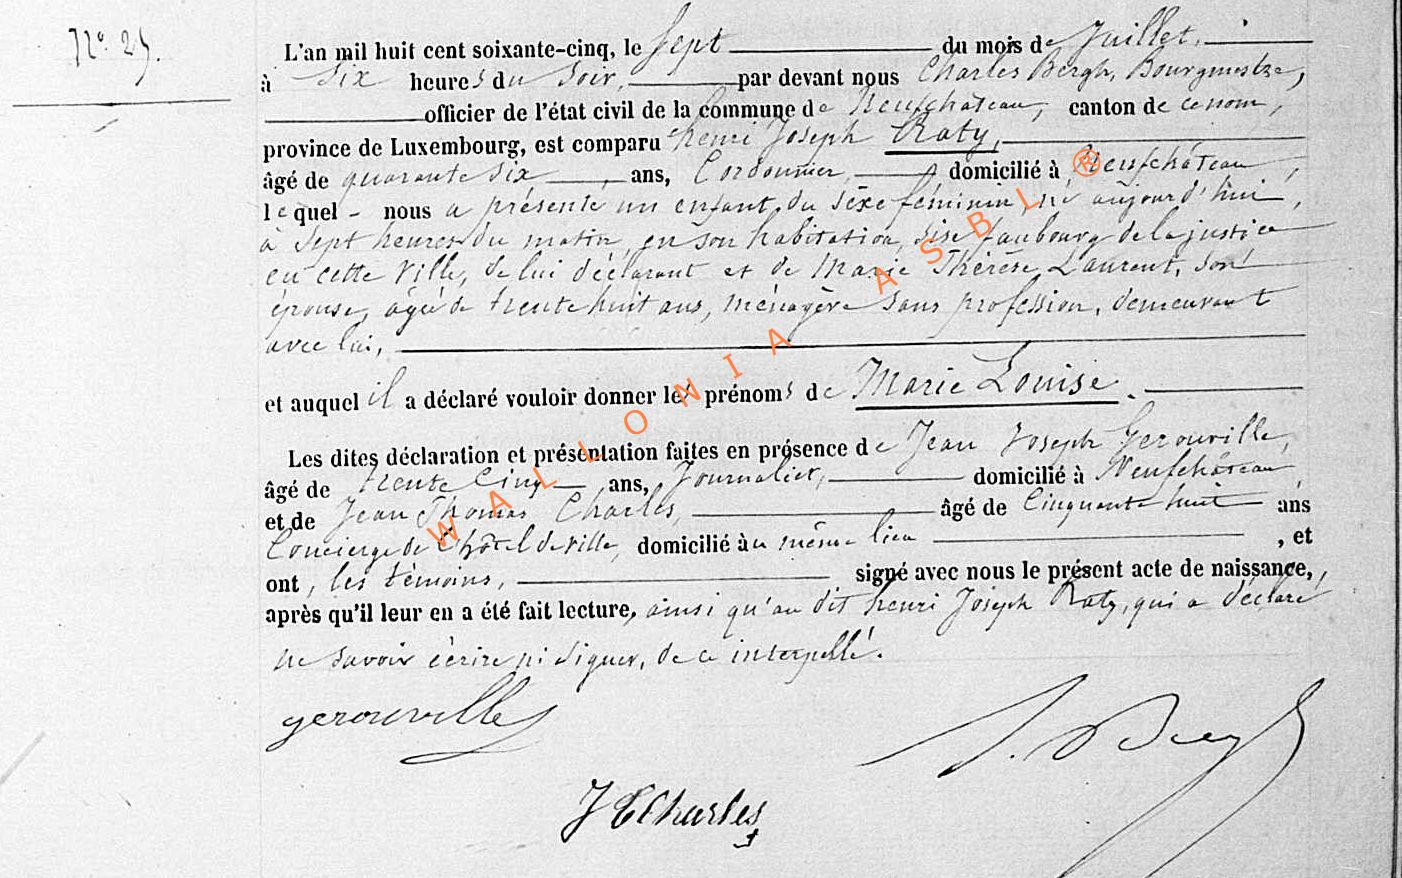 N° 25.
L'an mil huit cent soixante-cinq, le Sept du mois de Juillet,
à Six heures du Soir, par devant nous Charles Bergh, Bourgmestre,
officier de l'état civil de la commune de Neufchâteau, canton de ce nom,
province de Luxembourg, est comparu henri Joseph Raty,
âgé de quarante Six ans, Cordonnier, domicilié à Neufchâteau,
lequel - nous a présenté un enfant du Sexe féminin, né aujourd'hui,
à Sept heures du matin, en son habitation, sise faubourg de la justice
en cette Ville, de lui déclarant et de Marie Thérèse Laurent, son
épouse, agée de trente huit ans, ménagère sans profession, demeurant
avec lui,
et auquel il a déclaré vouloir donner les prénoms de Marie Louise.
Les dites déclaration et présentation faites en présence de Jean Joseph Gerouville,
âgé de trente Cinq ans, Journalier, domicilié à Neufchâteau
et de Jean Thomas Charles, âgé de Cinquante huit ans
Concierge de l'hôtel de Ville, domicilié au même lieu , et
ont, les témoins, signé avec nous le présent acte de naissance,
après qu'il leur en a été fait lecture, ainsi qu'au dit henri Joseph Raty, qui a déclaré
ne savoir écrire ni signer, de ce interpellé.
gerouville
JTCharles
WALLONIA ASBL ®